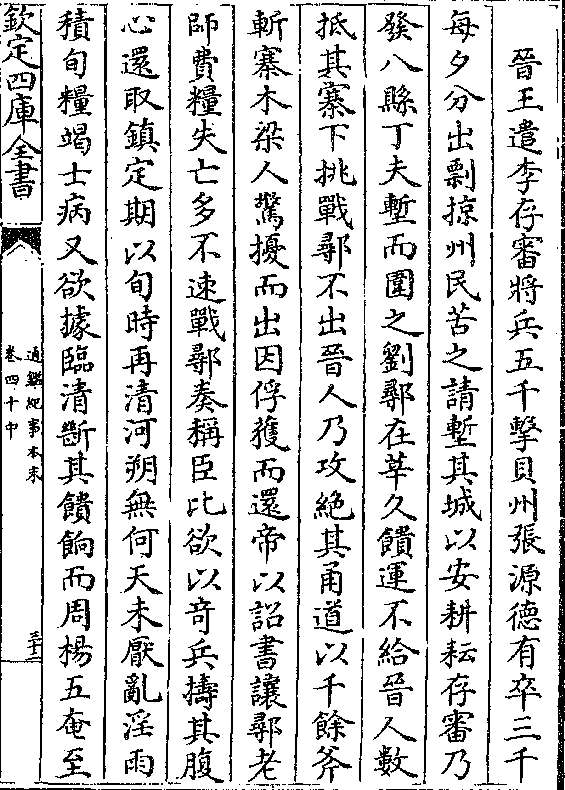 晉王遣李存審將兵五千擊貝州張源德有卒三千
每夕分出剽掠州民苦之請塹其城以安耕耘存審乃
發八縣丁夫塹而圍之劉鄩在莘久饋運不給晉人數
抵其寨下挑戰鄩不出晉人乃攻絶其甬道以千餘斧
斬寨木梁人驚擾而出因俘獲而還帝以詔書讓鄩老
師費糧失亡多不速戰鄩奏稱臣比欲以奇兵擣其腹
心還取鎮定期以旬時再清河朔無何天未厭亂淫雨
積旬糧竭士病又欲據臨清斷其饋餉而周楊五奄至
欽定四庫全書
通鑑紀事本末
卷四十中
三十二